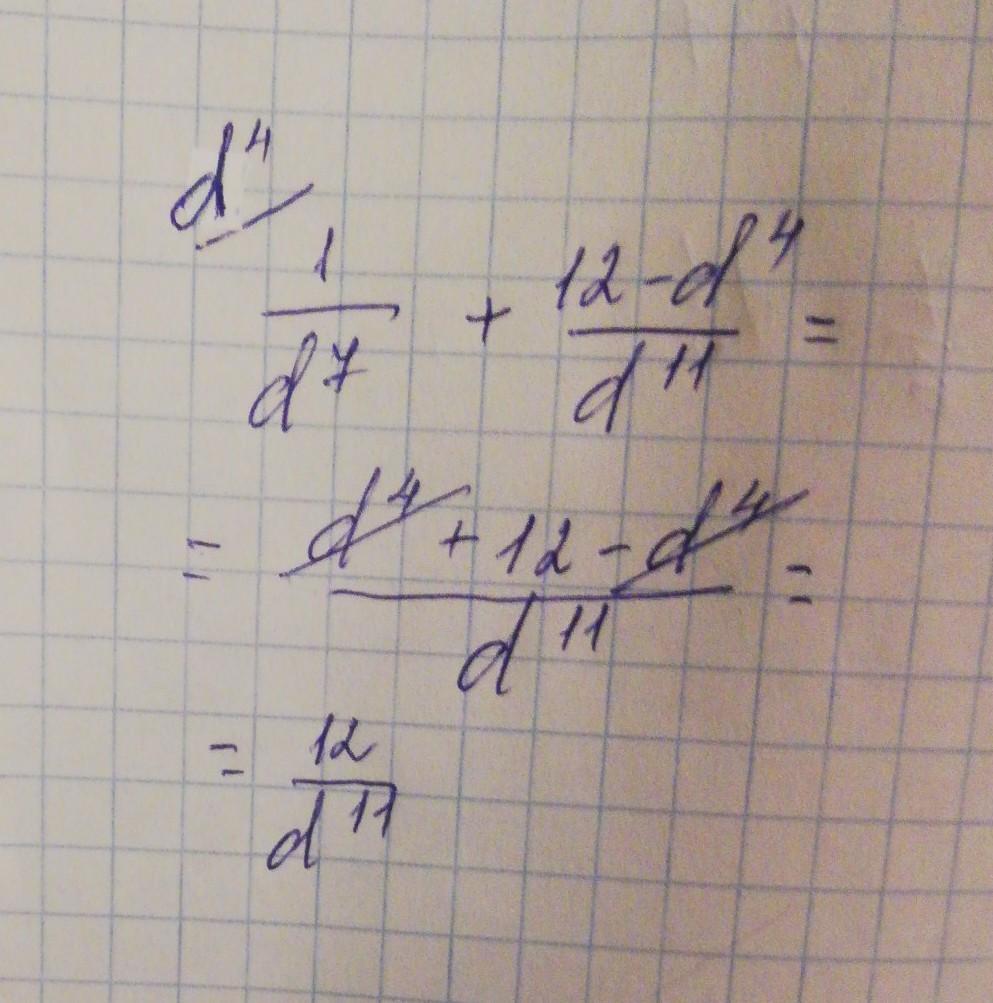 d⁴
1/d⁷ + (12-d⁴)/d¹¹ =
= (d⁴ + 12 - d⁴)/d¹¹ =
= 12/d¹¹